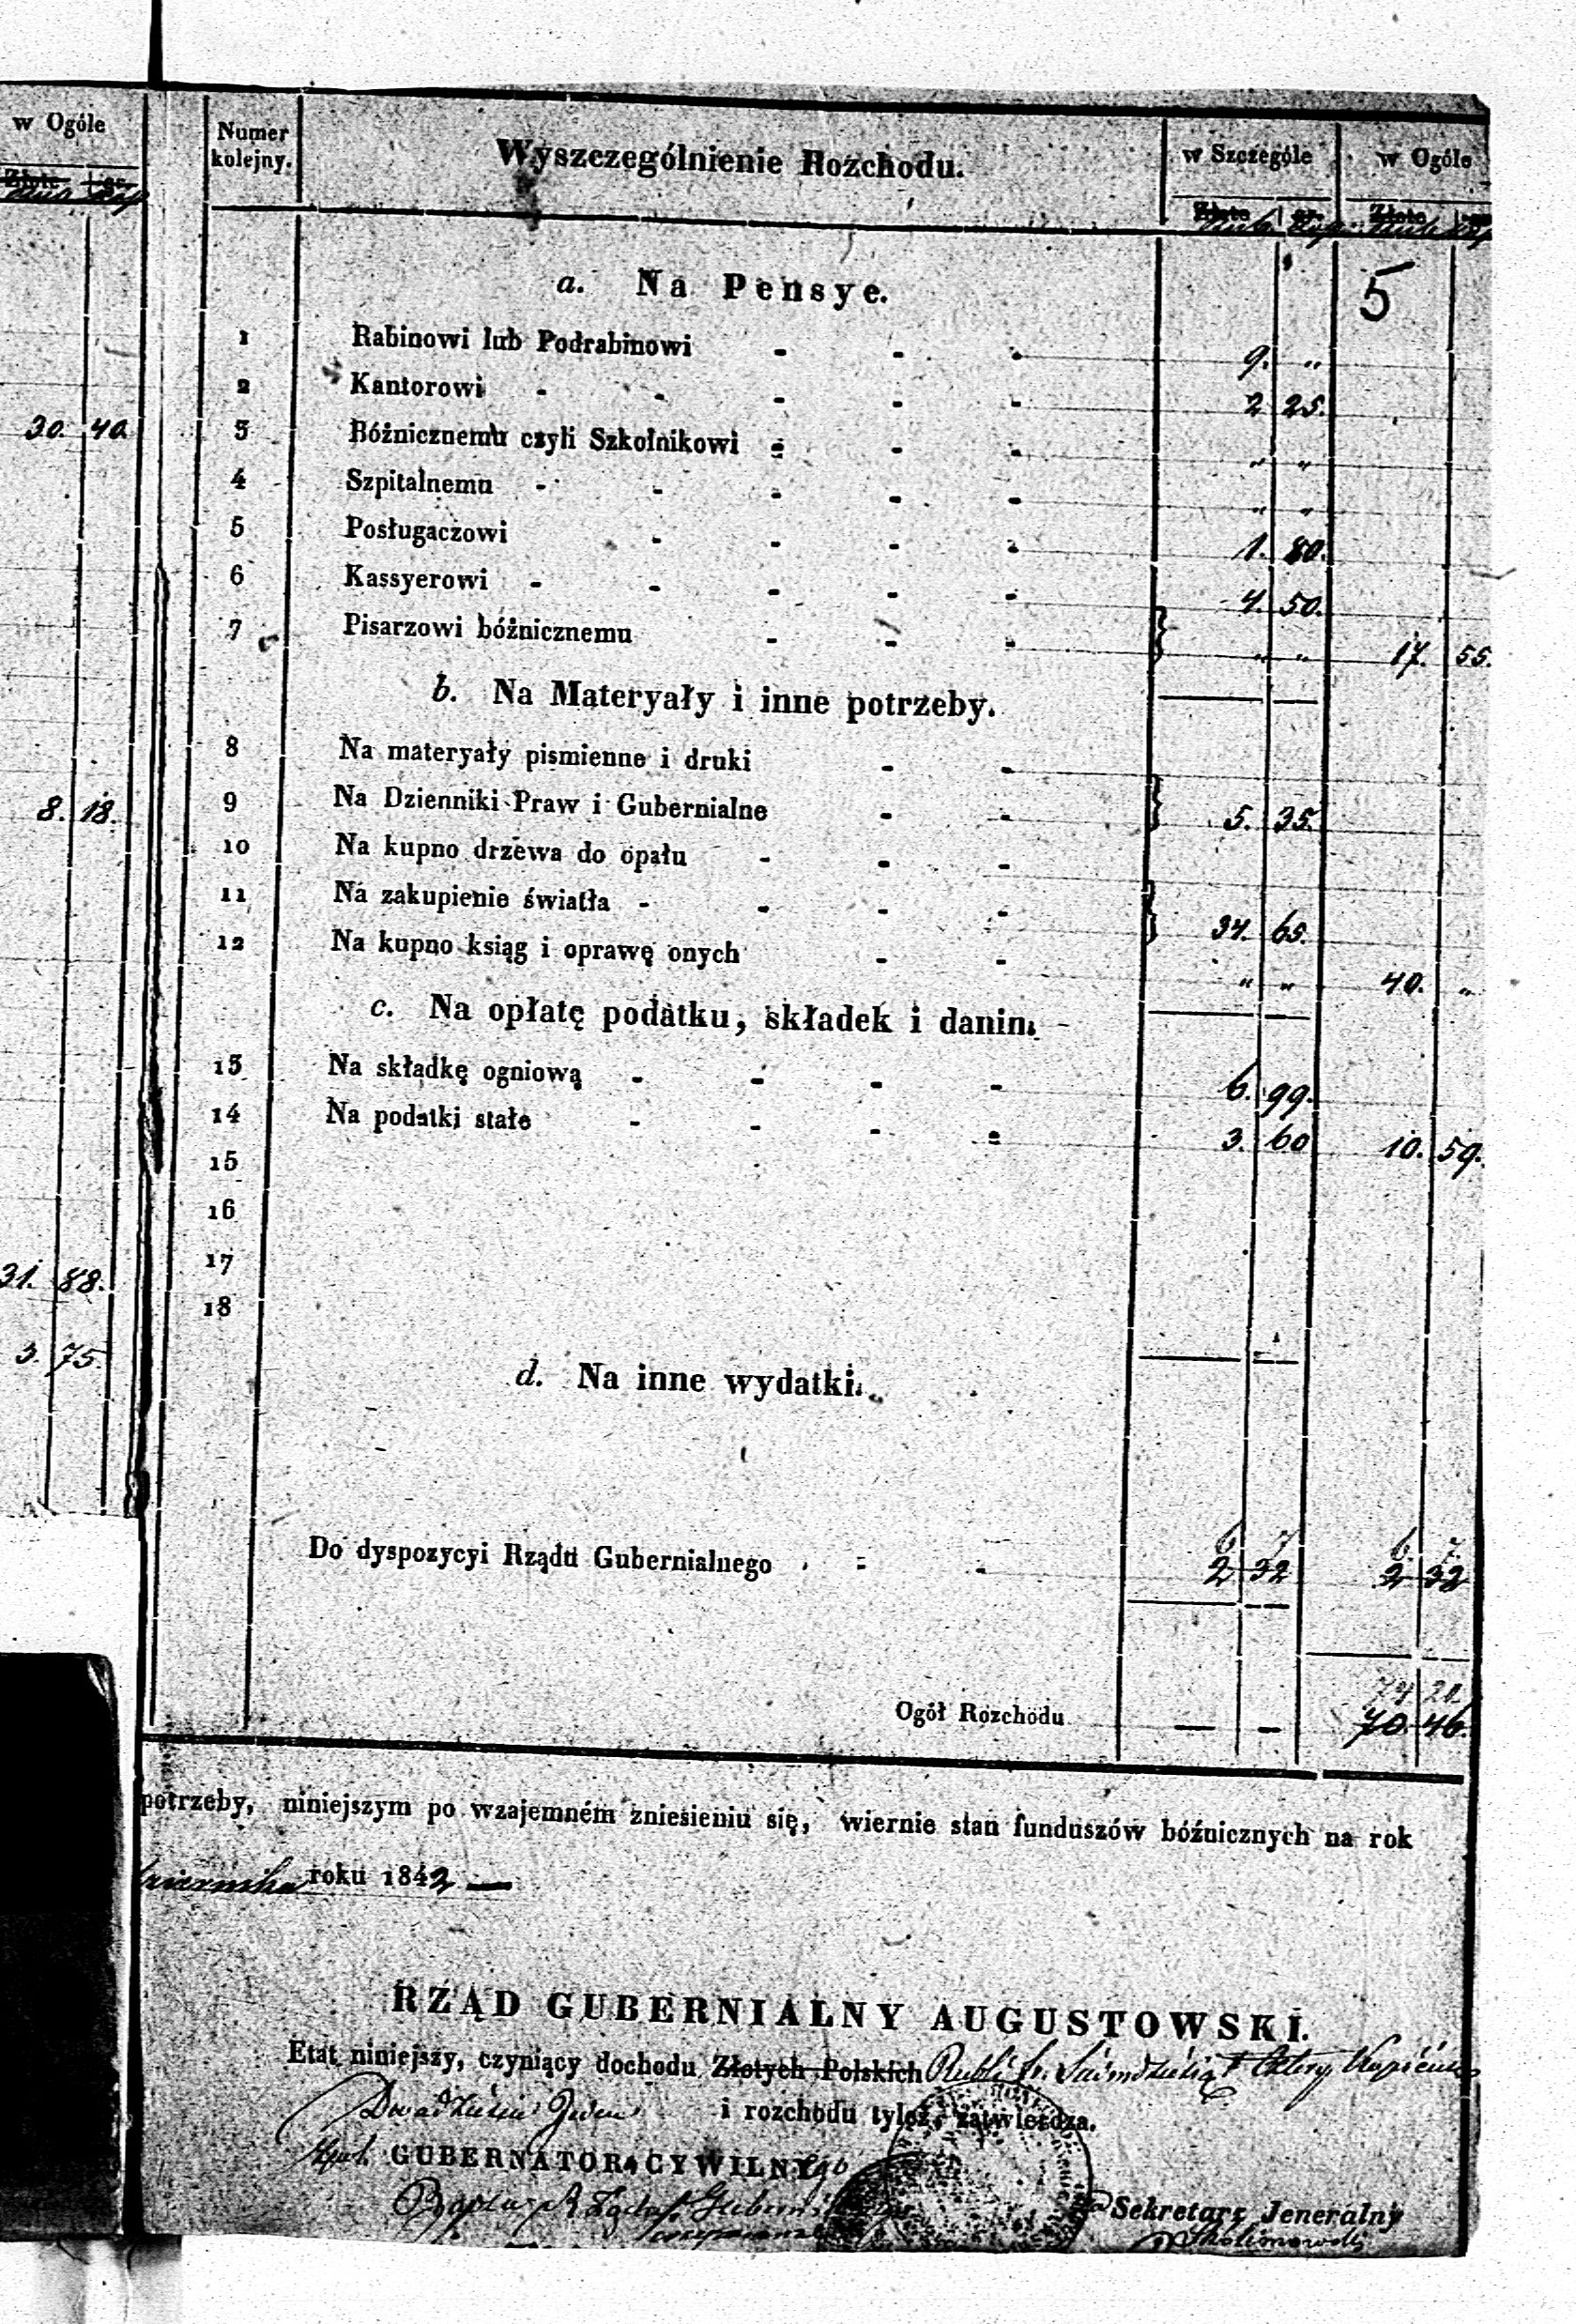 w Ogóle
30. 40
8. 18.
31. 88.
3. 75.
Numer kolejny. Wyszczególnienie Rozchodu. w Szczególe w Ogóle
Złote gr. Złote gr.
Rub. kop. Rub. kop.
5
a. Na Pensye.
1 Rabinowi lub Podrabinowi - - - 9. „
2 Kantorowi - - - - - 2 25.
3 Bóżnicznemu czyli Szkolnikowi - - - „ „
4 Szpitalnemu - - - - - „ „
5 Posługaczowi - - - - 1. 80.
6 Kassyerowi - - - - - 4. 50.
7 Pisarzowi bóżnicznemu - - - „ „ 17. 55.
b. Na Materyały i inne potrzeby.
8 Na materyały pismienne i druki - -
9 Na Dzienniki Praw i Gubernialne - - 5. 35.
10 Na kupno drzewa do opału - - -
11 Na zakupienie światła - - - - 34. 65.
12 Na kupno ksiąg i oprawę onych - - „ „ 40. „
c. Na opłatę podatku, składek i danin.
13 Na składkę ogniową - - - - 6. 99.
14 Na podatki stałe - - - - 3. 60 10. 59.
15
16
17
18
d. Na inne wydatki.
6. 7. 6. 7.
Do dyspozycyi Rządu Gubernialnego - - 2 32 2 32
74 21
Ogół Rozchodu — — 70. 46.
potrzeby, niniejszym po wzajemném zniesieniu się, wiernie stan funduszów bóżnicznych na rok
roku 1842 —
RZĄD GUBERNIALNY AUGUSTOWSKI.
Etat niniejszy, czyniący dochodu Złotych Polskich Rubli sr. Siedmdziesiąt Cztery Kopieiek
Dwadzieścia Jeden i rozchodu tyleż, zatwierdza.
GUBERNATOR CYWILNY
Sekretarz Jeneralny